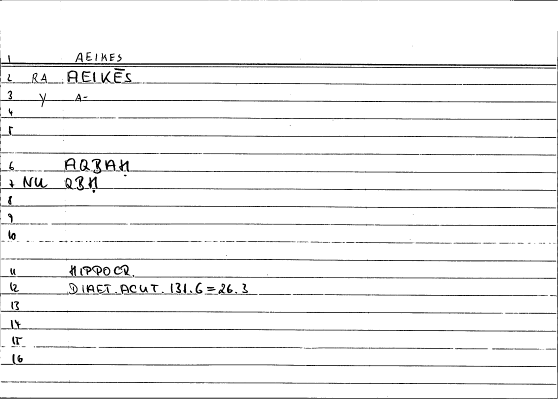 1 AEIKES
2 RA AEIKĒS
3 Y A-
4
5
6 AQBAḤ
7 NU QBḤ
8
9
10
11 HIPPOCR.
12 DIAET.ACUT.131.6=26.3
13
14
15
16